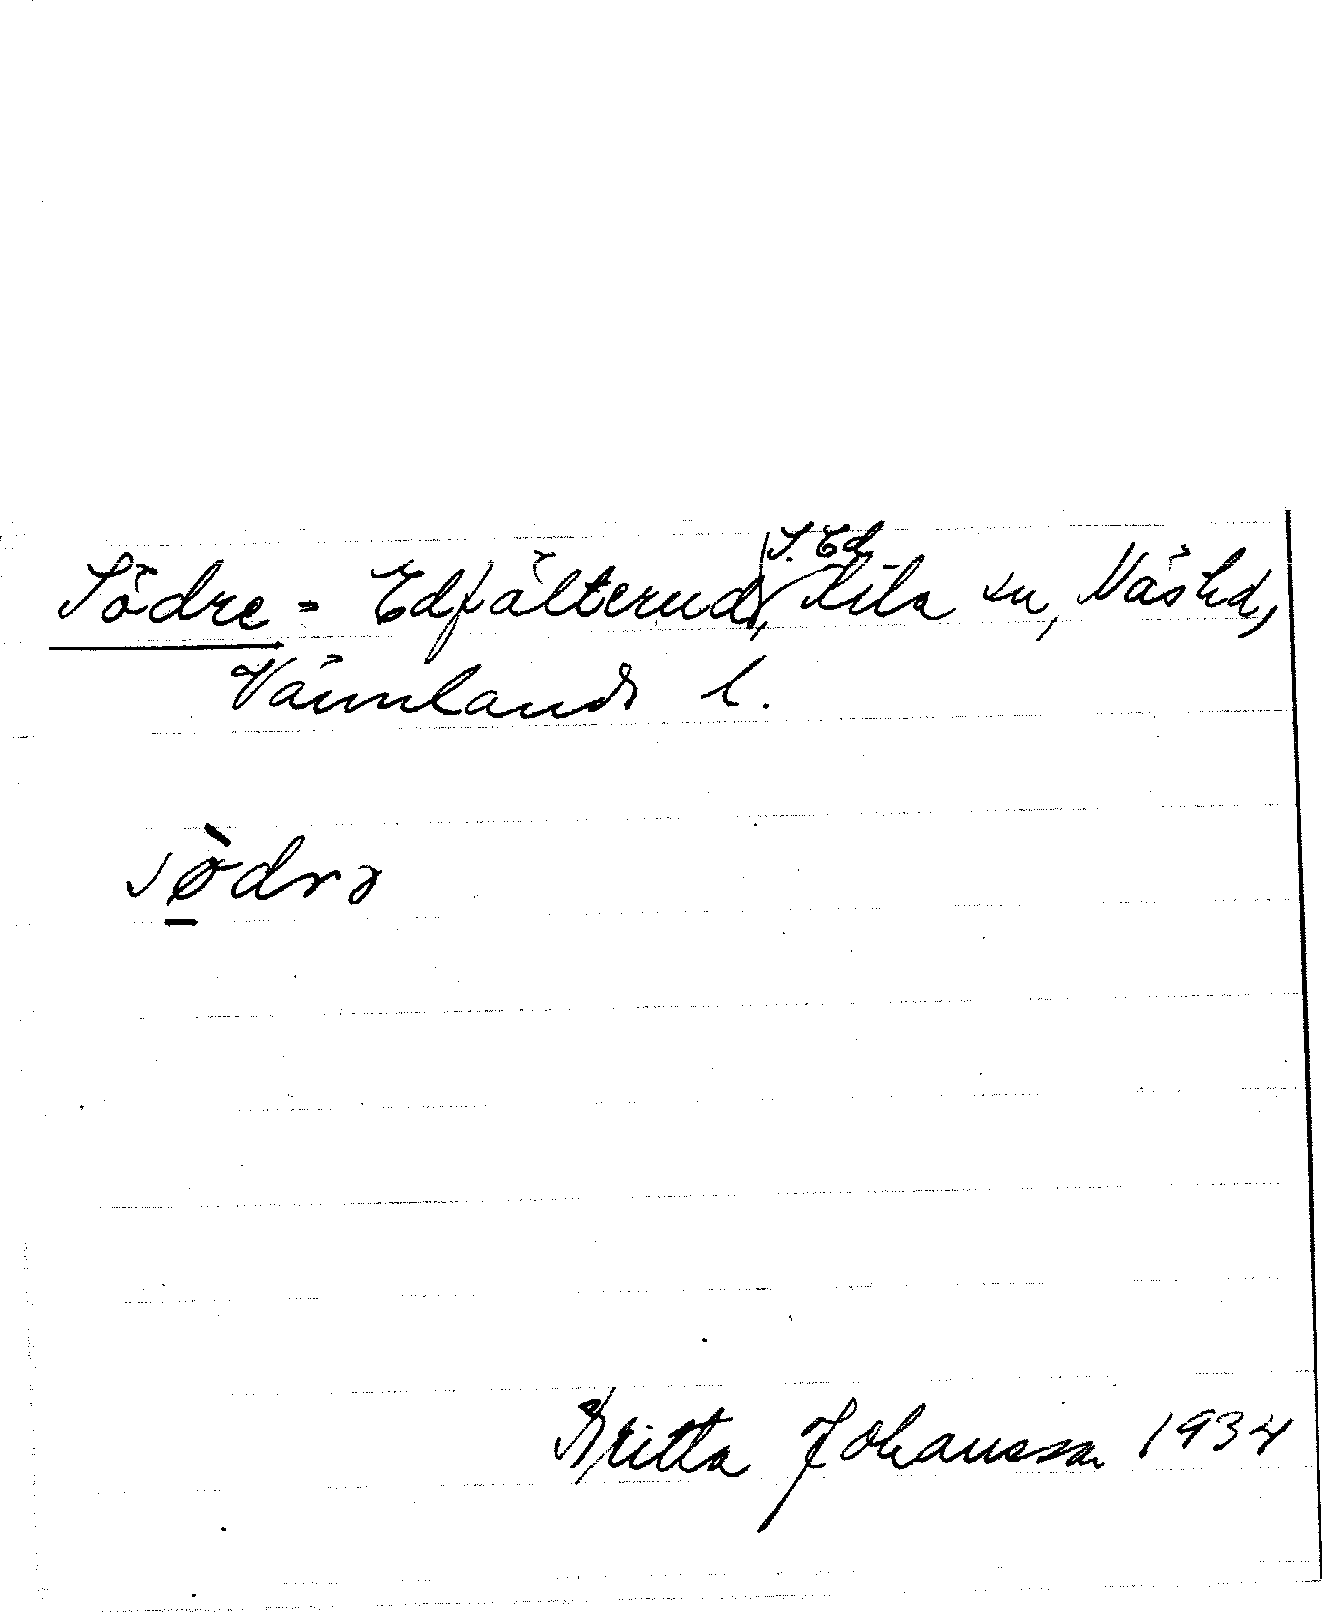 Södre - Edfälterud, S. Ed Kila sn, Näs hd,
Värmlands l.
sødrə
Britta Johansson 1934